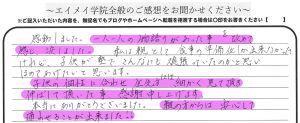 ～エイメイ学院全般のご感想をお聞かせください～
※ご記入いただいた内容を、無記名でもブログやホームページへ転載を許諾する場合は〇印をお書きください【　】
感動しました。一人一人の物語りがあった事を改めて
感じ 涙しました。私は親として食事の準備位しか出来なかった
けれど、子供が塾でこんなにも頑張っていたのかと思い
ほめてあげたいと思います。
子供の個性に合わせ 生活まで 細かく見て頂き
伸ばして頂いた事 感謝申し上げます。
本当にありがとうございました。親の方からは 安心して
通わせることが出来ました。